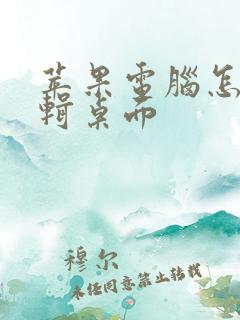 苹果電腦怎
輯桌面
穆尔
未经同意禁止转载